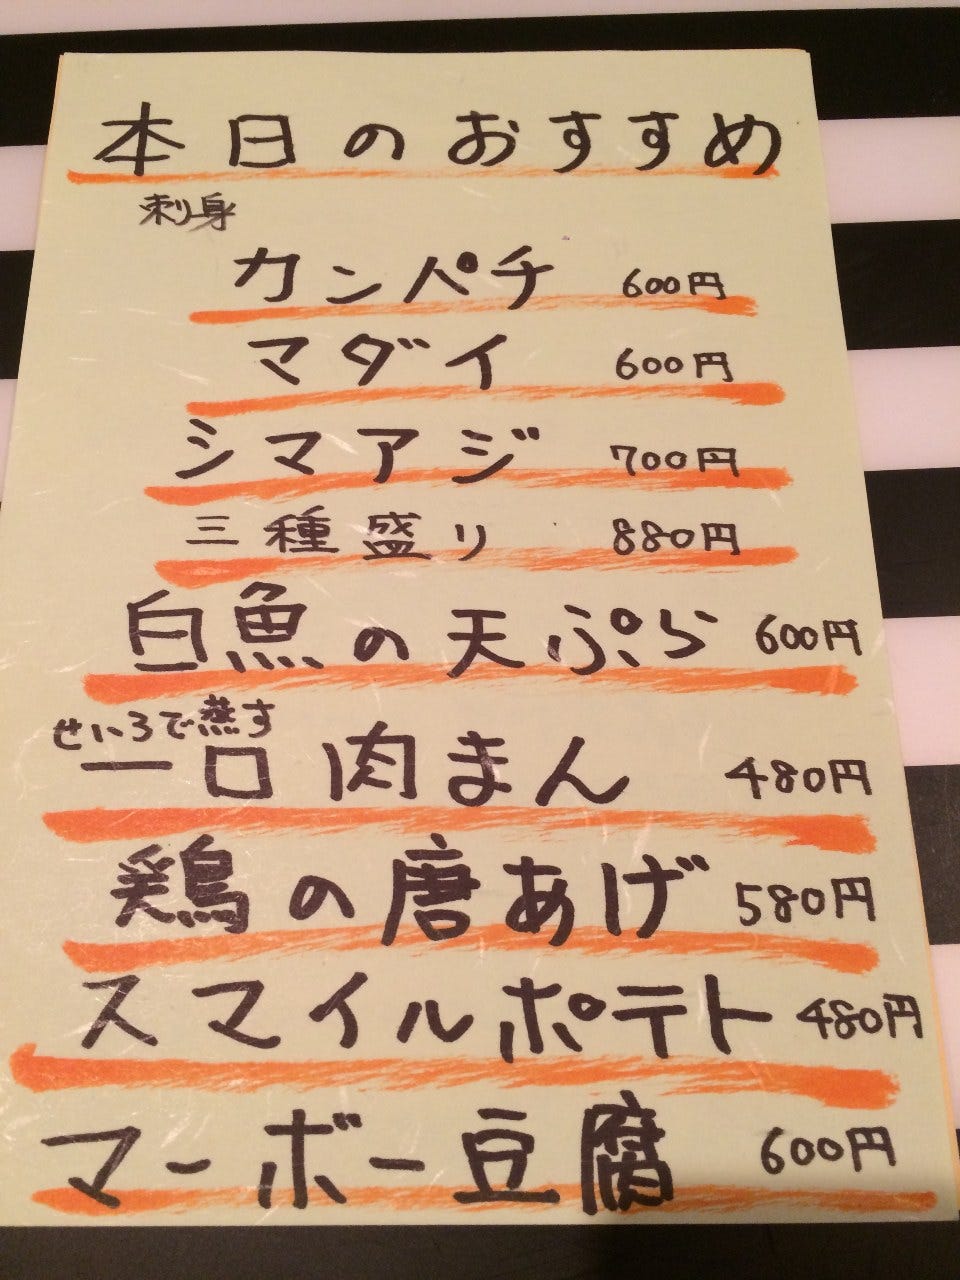 本日のおすすめ
刺身
カンパチ 600円
マダイ 600円
シマアジ 700円
三種盛り 880円
白魚の天ぷら 600円
せいろで蒸す
一口肉まん 480円
鶏の唐あげ 580円
スマイルポテト 480円
マーボー豆腐 600円